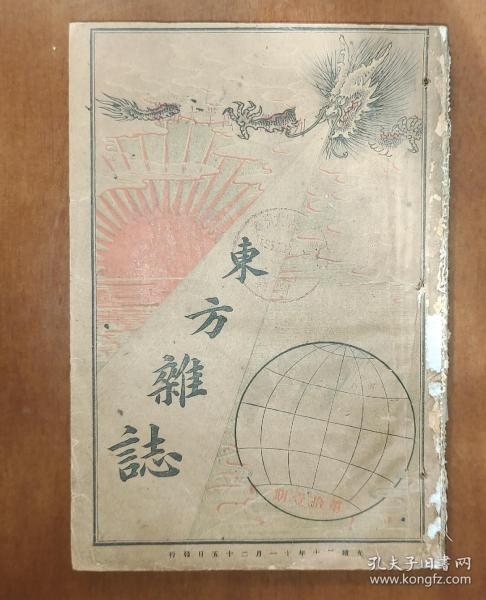 東方雜誌
第拾壹期
光緒三十年十一月二十五日發行
孔夫子旧书网
www.kongfz.com